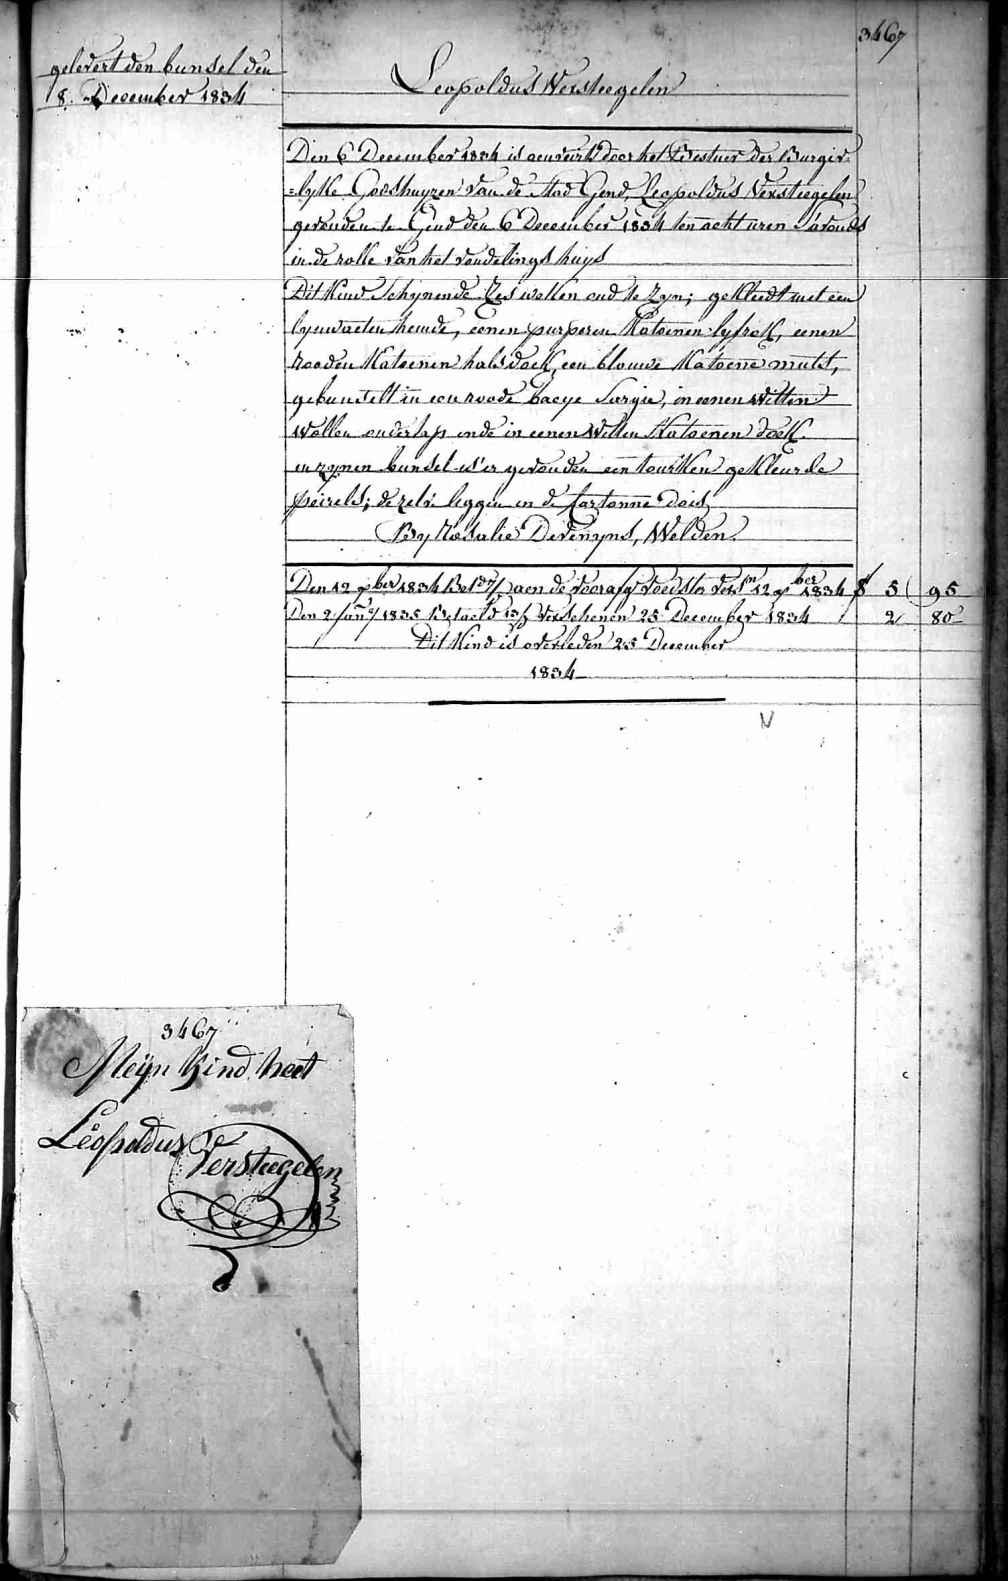 3467
gelevert den bunsel den
8. December 1834
Leopoldus Versteegelen
Den 6 December 1834 is aenveirt door het Bestuer der Burger-
=lyke Godshuyzen van de Stad Gend, Leopoldus Versteegelen
gevonden te Gend den 6 December 1834 ten acht uren s'avonds
in de rolle van het vondelingshuys
Dit Kind schynende Zes weken oud te zyn; gekleedt met een
lynwaeten hemde, eenen purperen Katoenen lyfrok, eenen
rooden Katoenen halsdoek, een blouwe Katoene muts,
gebunselt in een roode baeye sargie, in eenen witten
wollen onderlap ende in eenen Witten Katoenen doek.
in zynen bunsel is er gevonden een tourken gekleurde
peirels; de zelve liggen in de Cartonne doos
By Rosalie Devenyns, Welden.
Den 12 xber 1834 Bet aen de voedster 12 xber 1834 f 5 95
Den 2 Janry 1835 Betaeld verschenen 25 December 1834 2 80
Dit Kind is overleden 25 December
1834
3467
Meÿn Kind heet
Leopoldus
Versteegelen